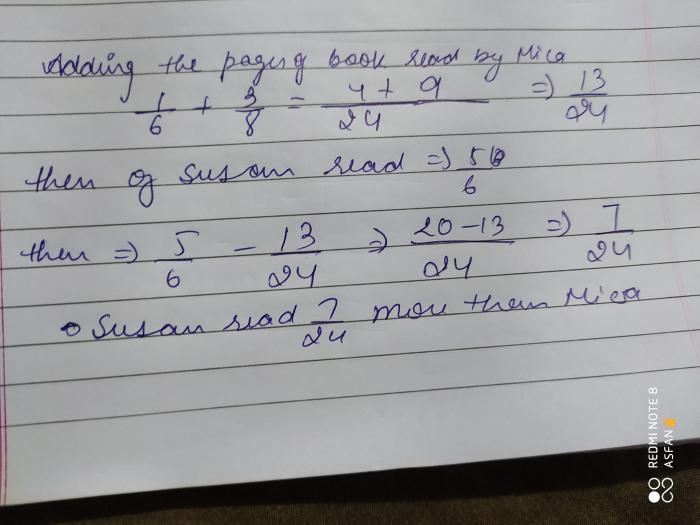 Adding the pages of book read by Mica
1/6 + 3/8 = 4+9/24 => 13/24
then of Susan read => 5/6
then => 5/6 - 13/24 => 20-13/24 => 7/24
Susan read 7/24 more then Mica
REDMI NOTE 8
ASFAN